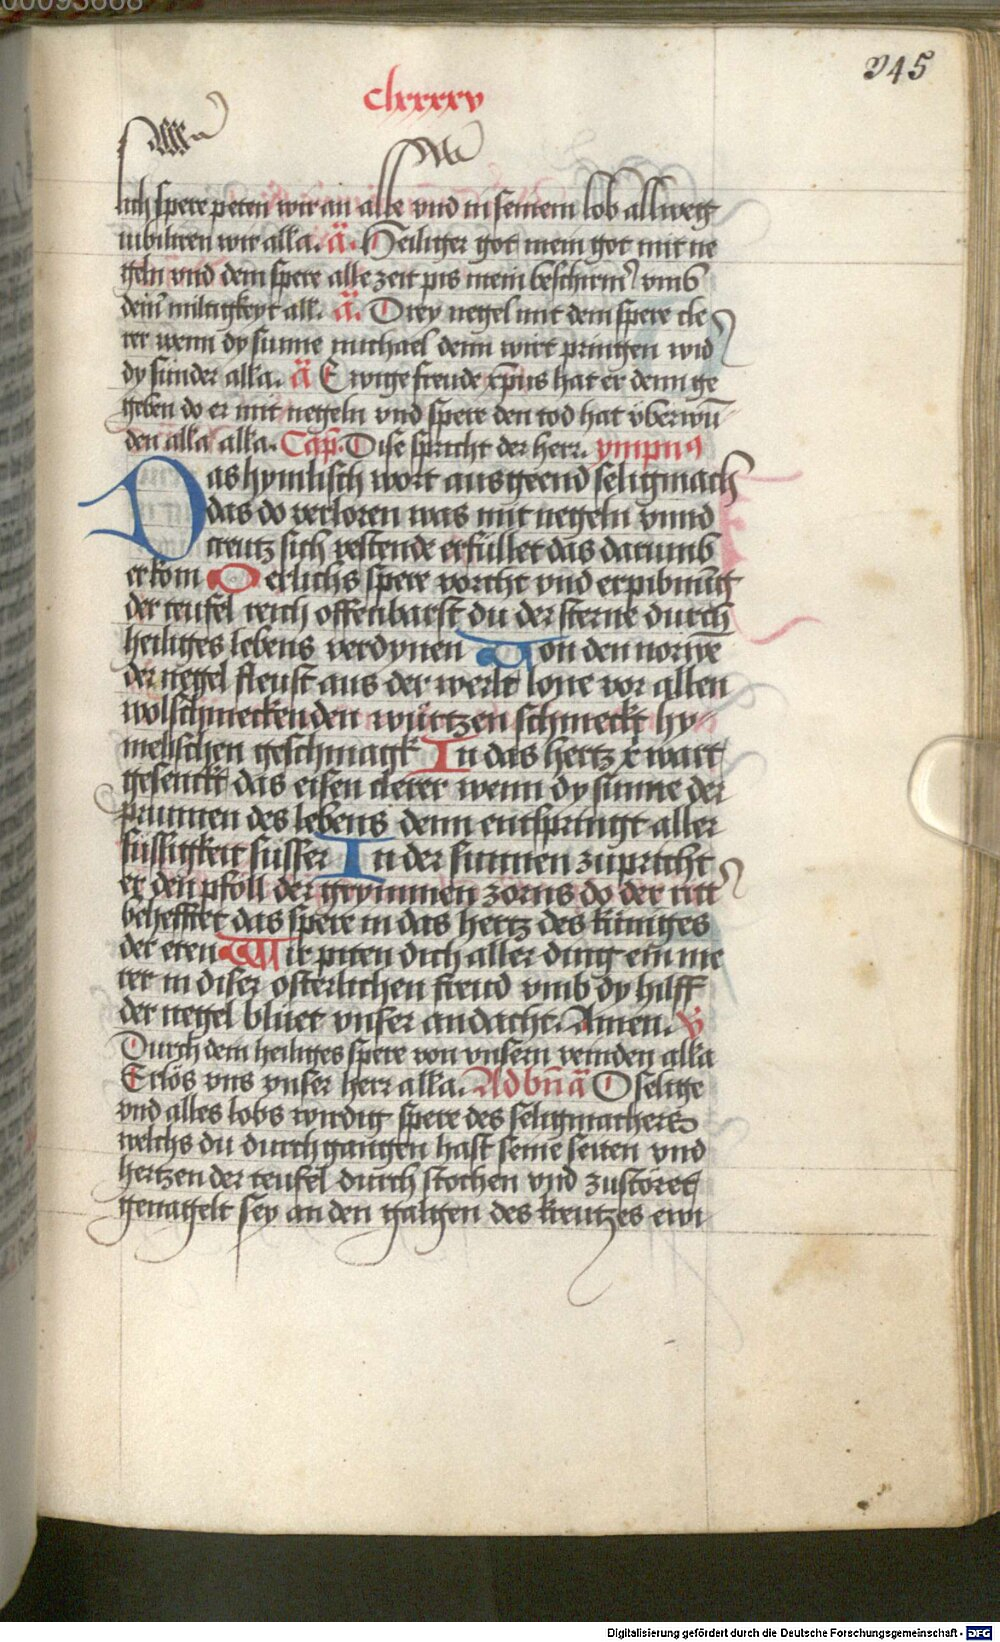 00093668
245
clxxxxv
lich spere peten wir an alle vnd in seinem lob allweg
iubiliren wir alla. ā. Heiliger got mein got mit ne
geln vnd dem spere alle zeit pis mein beschirmer vmb
deiner miltigkeyt all. ā. Drey negel mit dem spere cle
rer wenn dy sunne michael denn wirt pringen wid
dy sunder alla. ā Ewige freude xp̄us hat er denn ge
geben do er mit negeln vnd spere den tod hat vberwū
den alla alla. Cap. Dise spricht der herr. ympnus
Das hymlisch wort ausgeend seligmach
das do verloren was mit negeln vnnd
creutz sich vestende erfullet das darumb
er kom O erlichs spere vorcht vnd erpibnung
der teufel reich offenbarst du der sterne durch
heiliges lebens verdynen Von den norwē
der negel fleust aus der werlt lone vor allen
wolschmeckenden würtzen schmeckt hy
melischen geschmagk In das hertz x wart
gesenckt das eisen clerer wenn dy sunne der
prunnen des lebens denn entspringt aller
sussigkeit susser In der sunnen zupricht
er den pfoll der grymmen zorns do der ritt
behefftet das spere in das hertz des kuniges
der eren Wir piten dich aller ding ein me
rer in diser osterlichen freud vmb dy hilff
der negel bluet vnser andacht. Amen. v̄
Durch dem heiliges spere von vnsern veinden alla
Erlös vns vnser herr alla. Ad bn̄ā O selige
vnd alles lobs wirdig spere des seligmachers
welchs du durchgangen hast seine seiten vnd
hertzen der teufel durch stochen vnd zustöret
genagelt sey an den galgen des kreutzes ewi
Digitalisierung gefördert durch die Deutsche Forschungsgemeinschaft - DFG